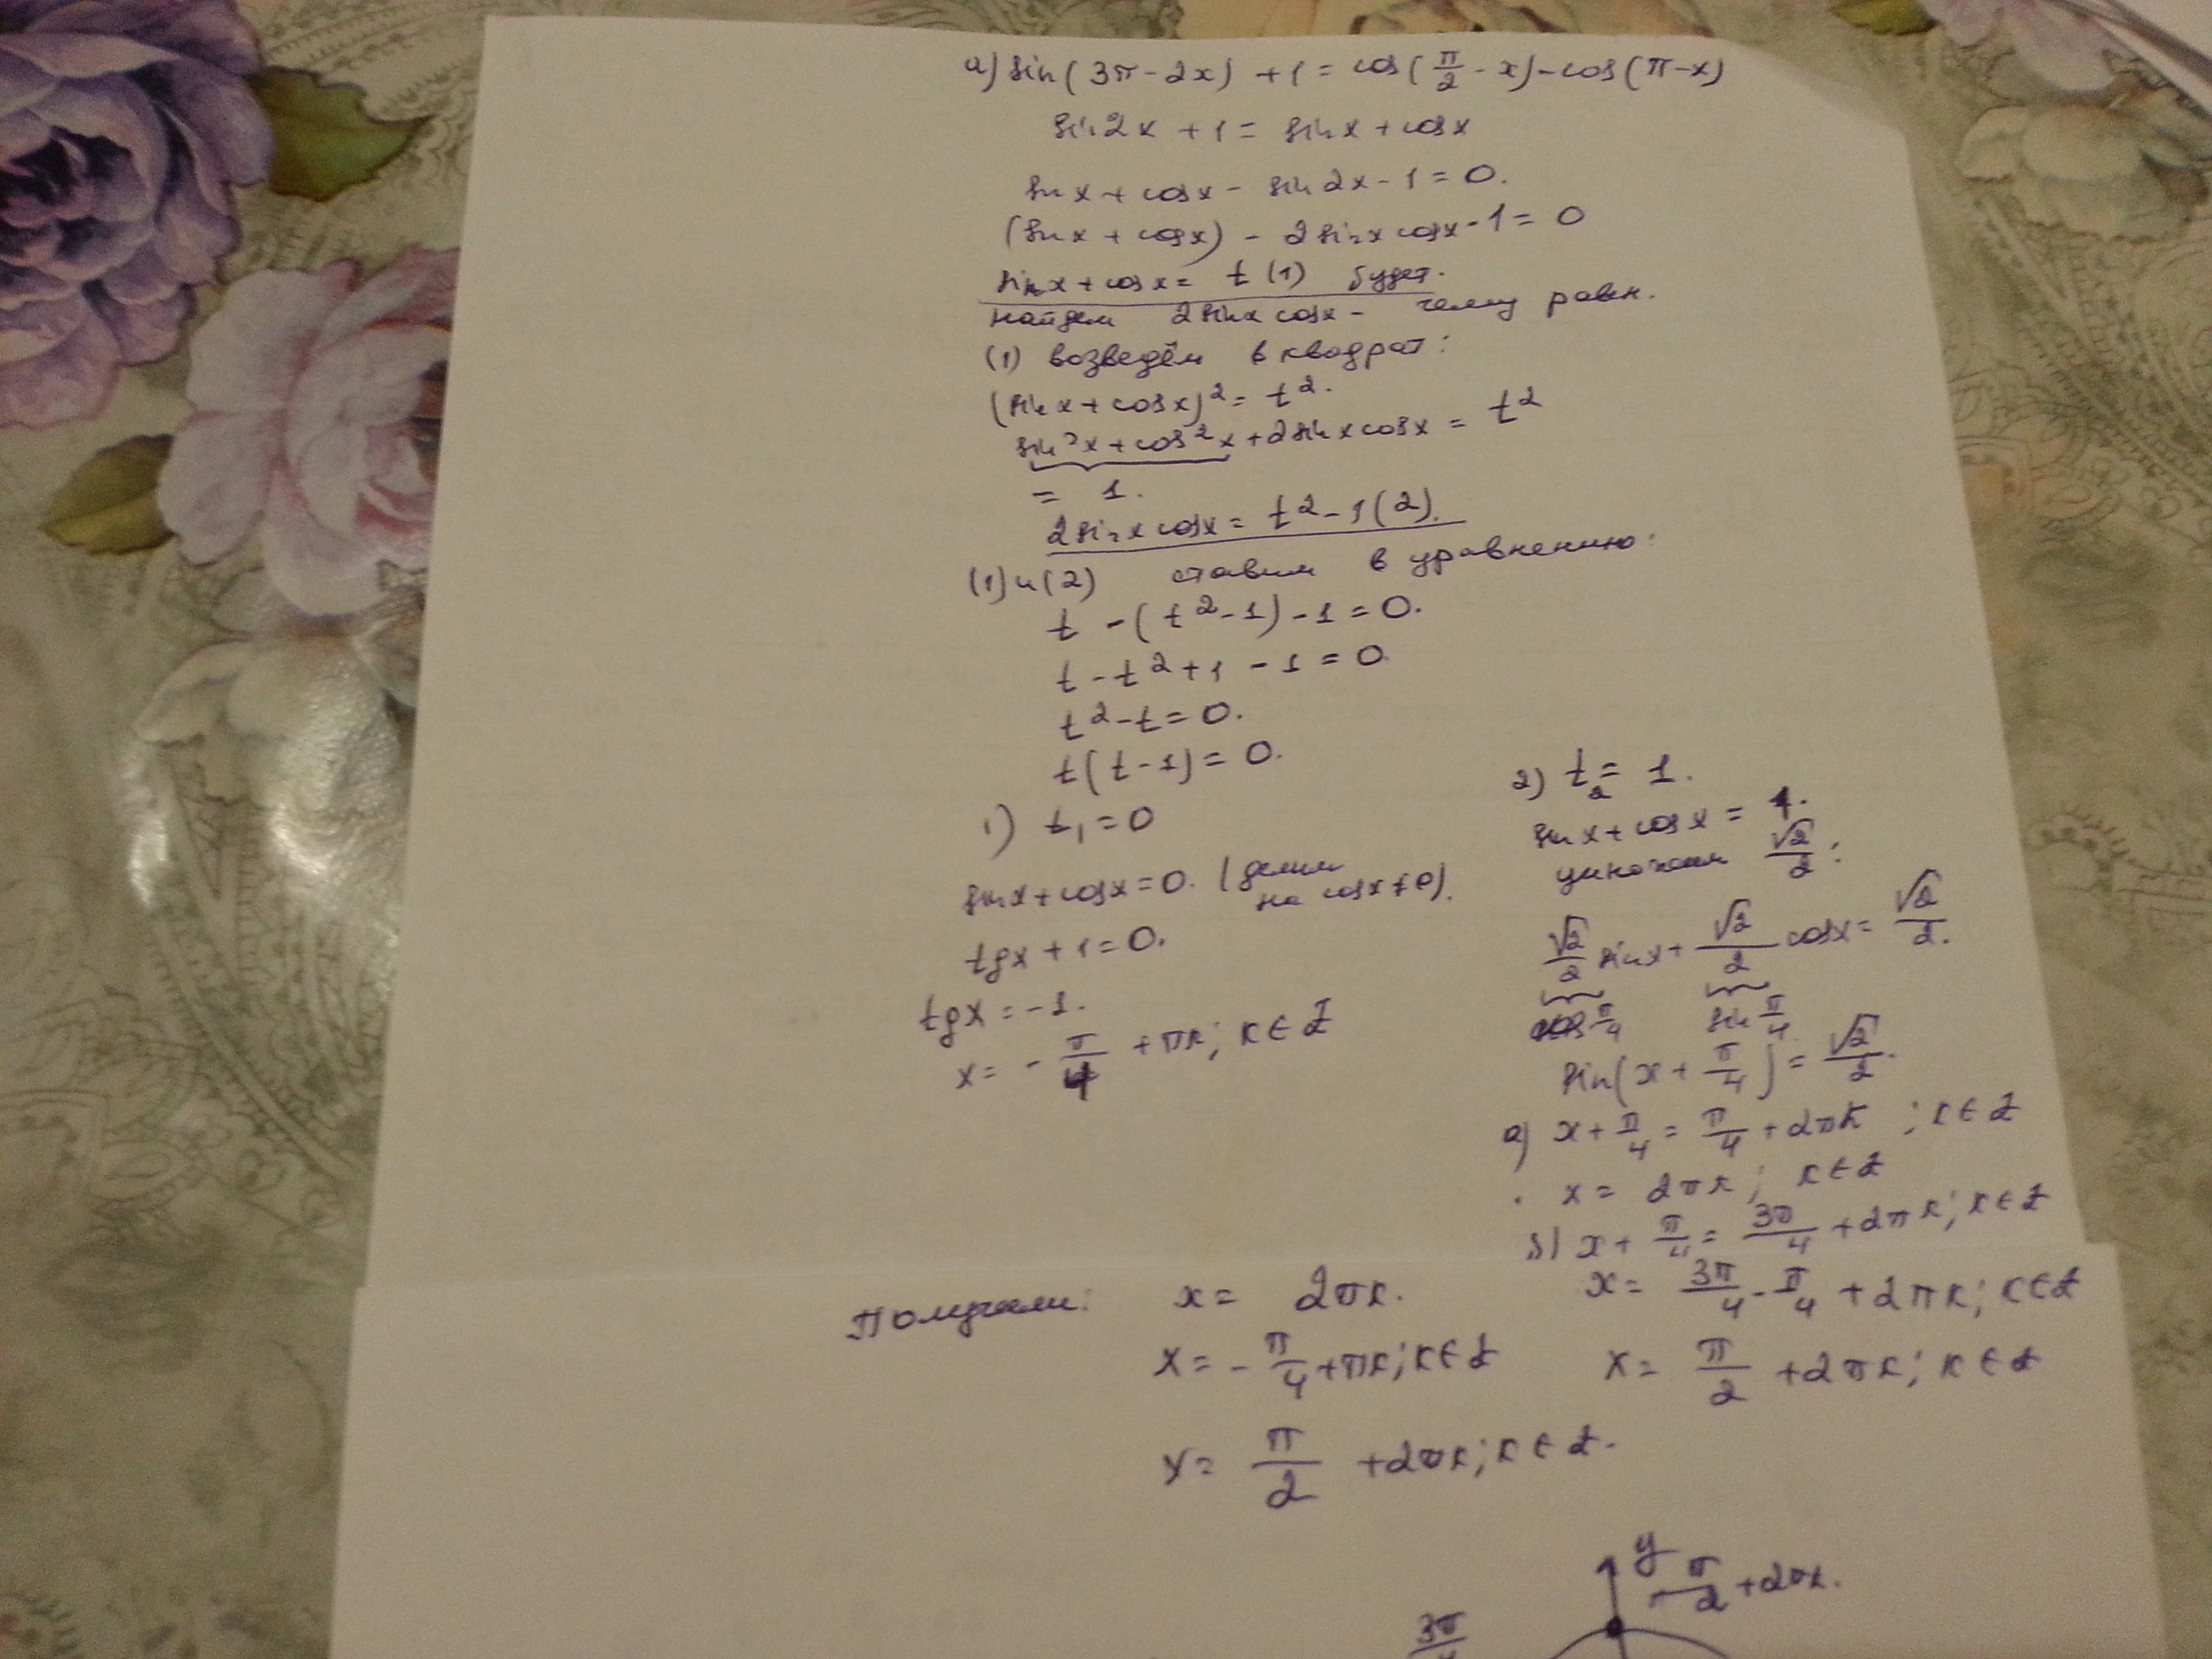 а) sin(3π-2x) +1 = cos(π/2 - x) - cos(π-x)
sin2x +1 = sinx + cosx
sinx + cosx - sin2x - 1 = 0.
(sinx + cosx) - 2sinxcosx - 1 = 0
sinx + cosx = t (1) будет.
найдем 2sinxcosx - чему равн.
(1) возведём в квадрат:
(sinx + cosx)² = t².
sin²x + cos²x + 2sinxcosx = t²
= 1.
2sinxcosx = t² - 1 (2).
(1) и (2) ставим в уравнению:
t - (t² - 1) - 1 = 0.
t - t² + 1 - 1 = 0.
t² - t = 0.
t(t - 1) = 0.
1) t₁ = 0
sinx + cosx = 0. (делим
на cosx ≠ 0).
tgx + 1 = 0.
tgx = -1.
x = -π/4 + πk; k ∈ Z
2) t₂ = 1.
sinx + cosx = 1.
умножаем √2/2:
√2/2 sinx + √2/2 cosx = √2/2.
cos π/4 sin π/4
sin(x + π/4) = √2/2.
а) x + π/4 = π/4 + 2πk ; k ∈ Z
. x = 2πk; k ∈ Z
б) x + π/4 = 3π/4 + 2πk; k ∈ Z
x = 3π/4 - π/4 + 2πk; k ∈ Z
x = π/2 + 2πk; k ∈ Z
Получаем: x = 2πk.
x = -π/4 + πk; k ∈ Z
x = π/2 + 2πk; k ∈ Z.
y
π/2 + 2πk.